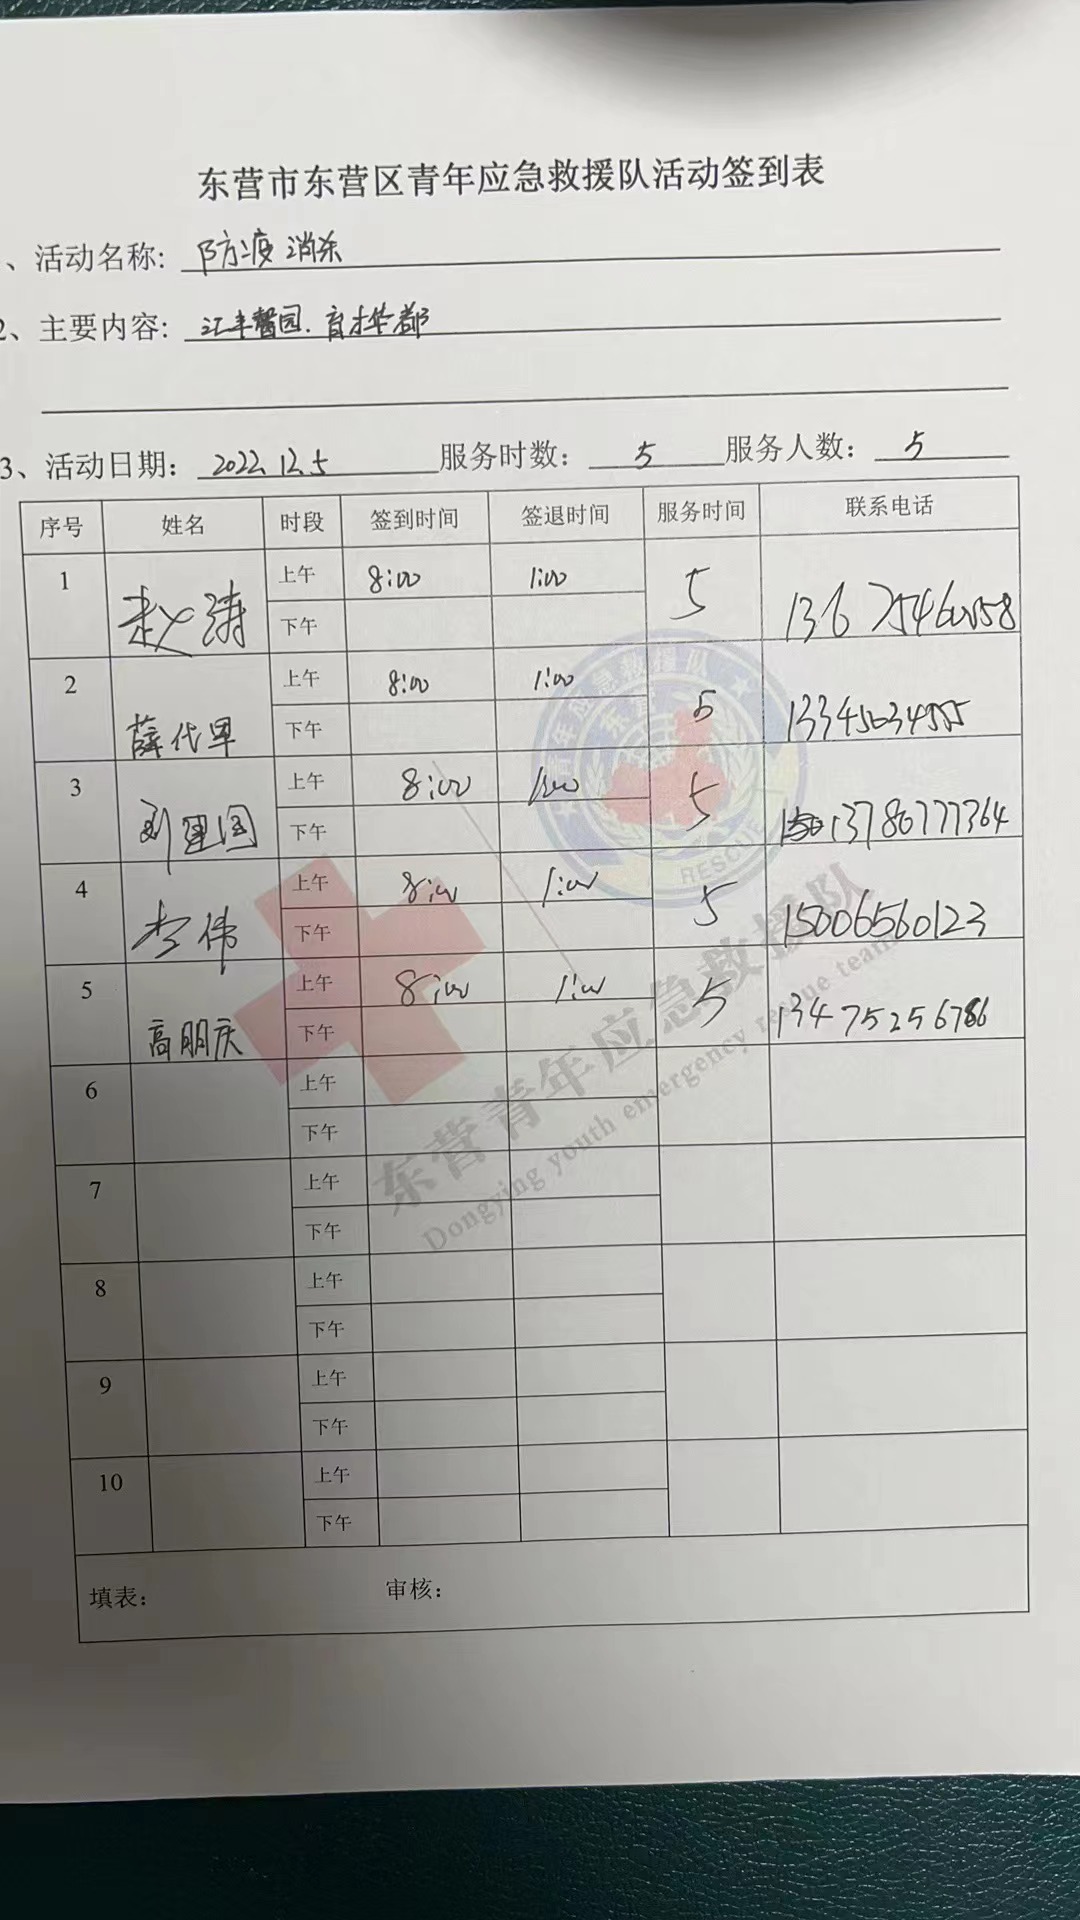 东营市东营区青年应急救援队活动签到表
、活动名称: 防疫消杀
2、主要内容: 汇丰馨园.育才华都
3、活动日期: 2022.12.5 服务时数: 5 服务人数: 5
序号 姓名 时段 签到时间 签退时间 服务时间 联系电话
1 赵涛 上午 8:00 1:00 5
下午
2 薛代军 上午 8:00 1:00 5
下午
3 刘建国 上午 8:00 1:00 5 13780777364
下午
4 李伟 上午 8:00 1:00 5 15006560123
下午
5 高明庆 上午 8:00 1:00 5 13475256786
下午
6 上午
下午
7 上午
下午
8 上午
下午
9 上午
下午
10 上午
下午
填表: 审核:
青年应急救援队
RESCUE
东营青年应急救援队
Dongying youth emergency rescue team